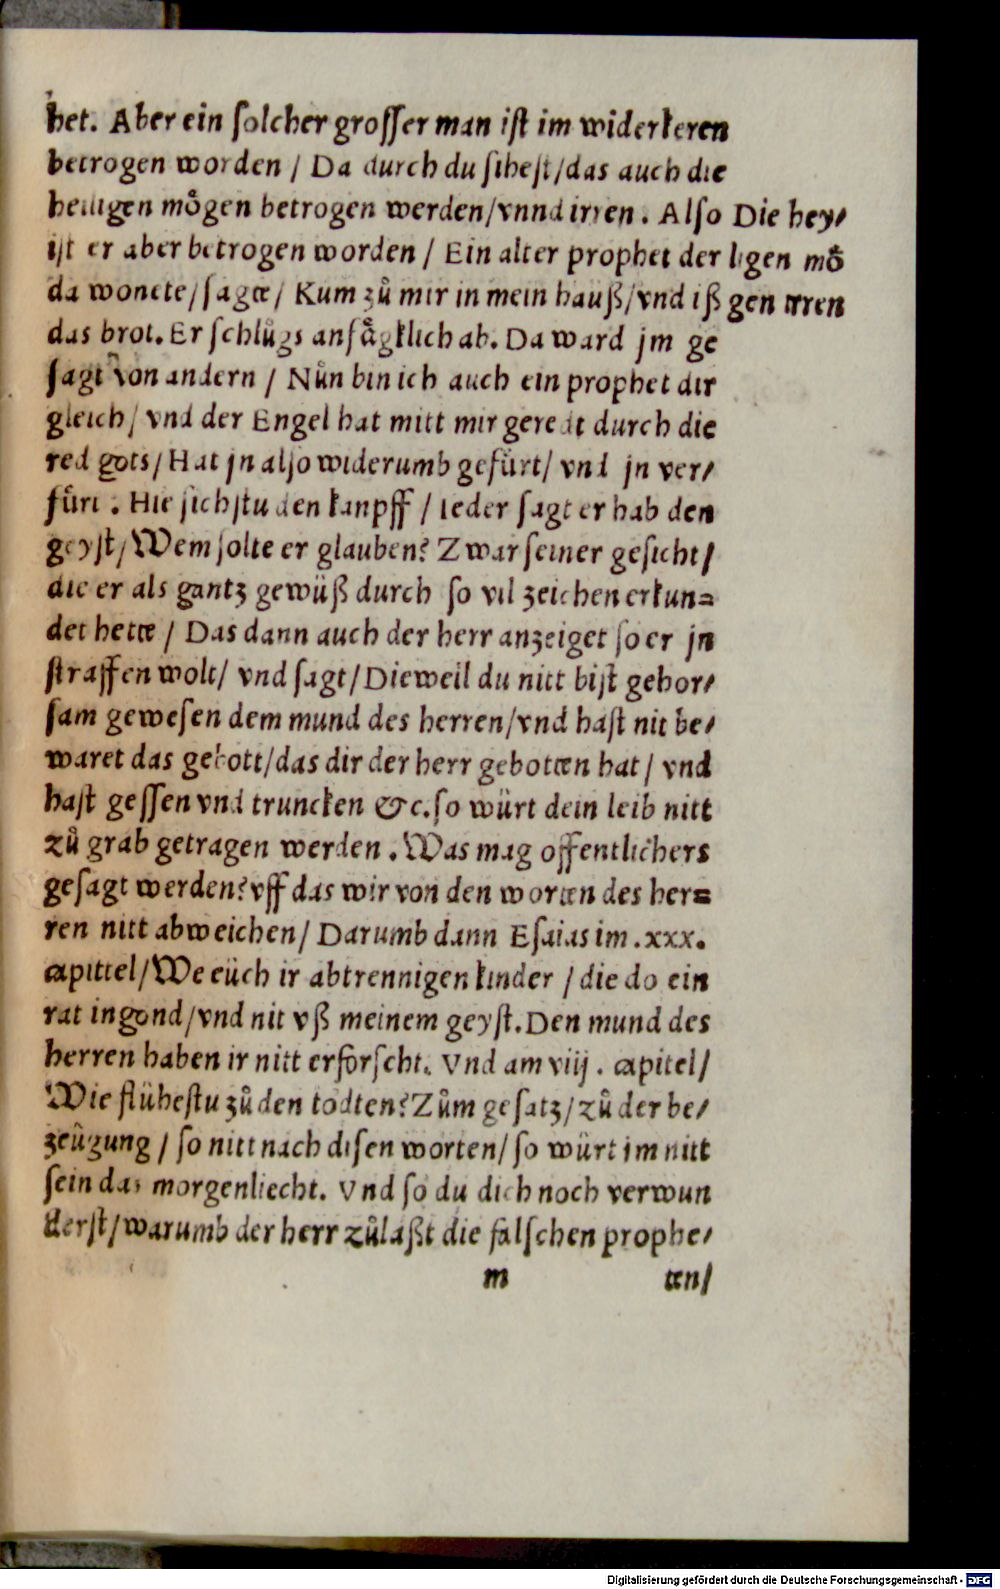 het. Aber ein solcher grosser man ist im widerkeren
betrogen worden / Da durch du sihest/das auch die
heiligen moͤgen betrogen werden/vnnd irren. Also
ist er aber betrogen worden / Ein alter prophet der
da wonete/sagte/ Kum zů mir in mein hauß/vnd iß
das brot. Er schlůgs anfaͤgklich ab. Da ward jm ge
sagt von andern / Nůn bin ich auch ein prophet dir
gleich/ vnd der Engel hat mitt mir geredt durch die
red gots/Hat jn also widerumb gefuͤrt/ vnd jn ver/
fuͤrt . Hie sichstu den kanpff / ieder sagt er hab den
geyst/Wem solte er glauben? Zwar seiner gesicht/
die er als gantz gewüß durch so vil zeichen erkun=
det hette / Das dann auch der herr anzeiget so er jn
straffen wolt/ vnd sagt/Dieweil du nitt bist gehor/
sam gewesen dem mund des herren/vnd hast nit be/
waret das gebott/das dir der herr gebotten hat/ vnd
hast gessen vnd truncken &c.so würt dein leib nitt
zů grab getragen werden .Was mag offentlichers
gesagt werden?vff das wir von den worten des her=
ren nitt abweichen/ Darumb dann Esaias im .xxx.
capittel/We eüch ir abtrennigen kinder /die do ein
rat ingond/vnd nit vß meinem geyst.Den mund des
herren haben ir nitt erforscht. Vnd am viij . capitel/
Wie flühestu zů den todten?Zům gesatz/zů der be/
zeügung / so nitt nach disen worten/ so würt im nitt
sein das morgenliecht. Vnd so du dich noch verwun
derst/warumb der herr zůlaßt die falschen prophe/
m ten/
Die hey/
ligen moͤ
gen irren
Digitalisierung gefördert durch die Deutsche Forschungsgemeinschaft - DFG